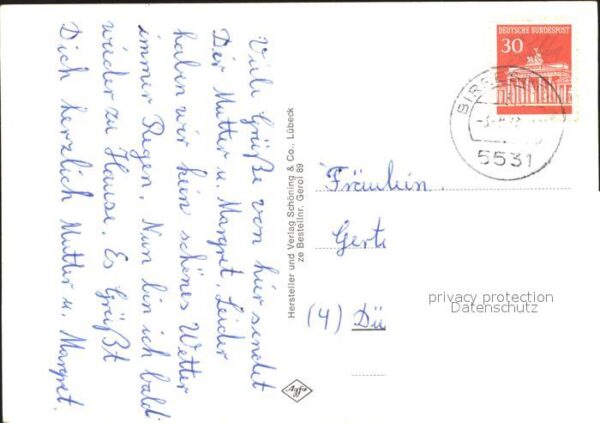 Viele Grüße von hier sendet
Dir Mutter u. Margret. Leider
haben wir kein schönes Wetter
immer Regen. Nun bin ich bald
wieder zu Hause. Es Grüßt
Dich herzlich Mutter u. Margret.
Hersteller und Verlag Schöning & Co., Lübeck
ze Bestellnr. Gerol 89
Agfa
DEUTSCHE BUNDESPOST
30
5531
Fräulein
Gert
(4) Dü
privacy protection
Datenschutz